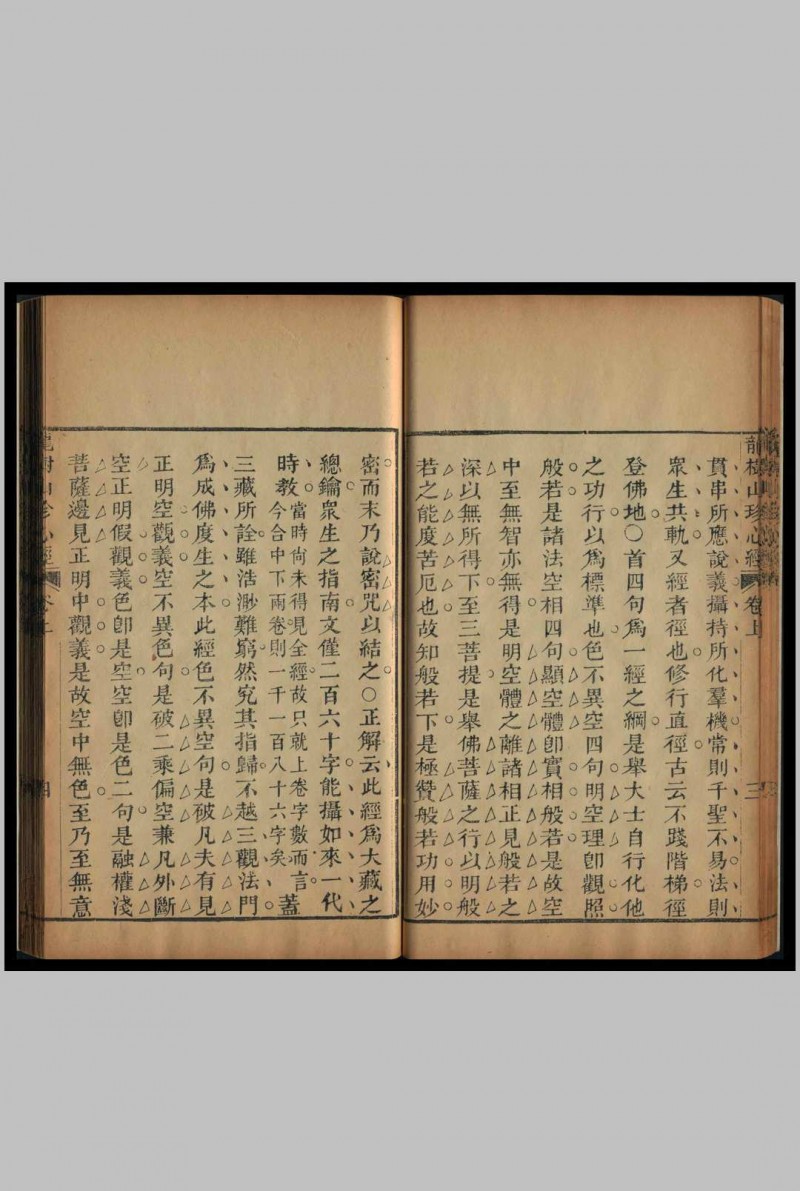 貫串所應說義攝持所化羣機常則千聖不易法則
衆生共軌又經者徑也修行直徑古云不踐階梯徑
登佛地〇首四句爲一經之綱是舉大士自行化他
之功行以爲標準也色不異空四句明空理卽觀照
般若是諸法空相四句顯空體卽實相般若是故空
中至無智亦無得是明空體之離諸相正見般若之
深以無所得下至三菩提是舉佛菩薩之行以明般
若之能度苦厄也故知般若下是極贊般若功用妙
密而末乃說密咒以結之〇正解云此經爲大藏之
總鑰衆生之指南文僅二百六十字能攝如來一代
時教當時尙未得見全經故只就上卷字數而言今合中下兩卷則一千一百八十六字矣蓋
三藏所詮雖浩渺難窮然究其指歸不越三觀法門
爲成佛度生之本此經色不異空句是破凡夫有見
正明空觀義空不異色句是破二乘偏空兼凡外斷
空正明假觀義色卽是空空卽是色二句是融權淺
菩薩邊見正明中觀義是故空中無色至乃至無意
龍樹山珍心經
卷上
三
四